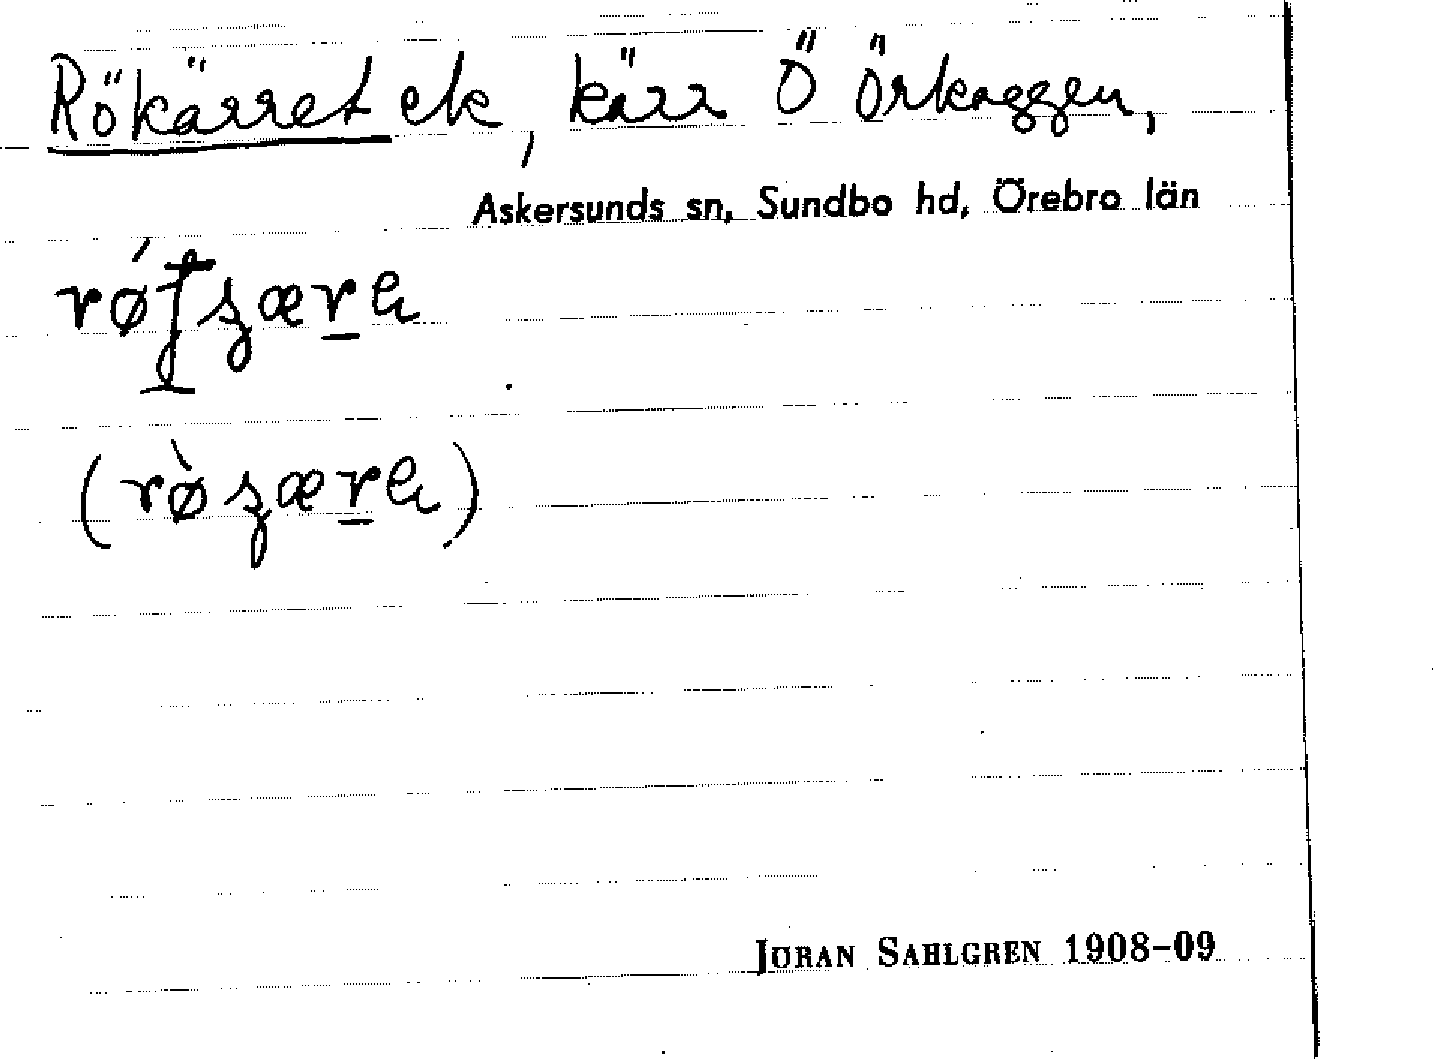 Rökärret ek, kärr Ö Örkaggen,
Askersunds sn, Sundbo hd, Örebro län
JÖRAN SAHLGREN 1908-09